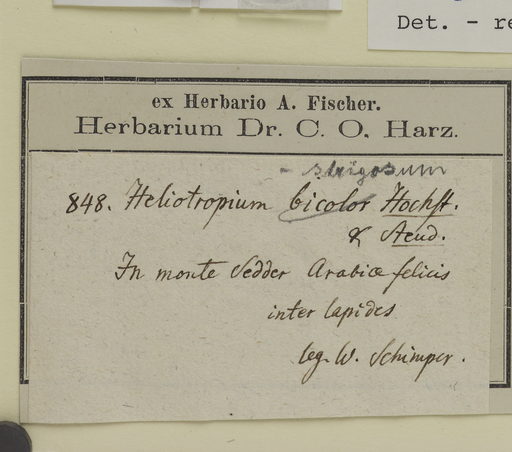 Det. - re
ex Herbario A. Fischer.
Herbarium Dr. C. O. Harz.
- strigosum
848. Heliotropium bicolor Hochst.
& Steud.
In monte Sedder Arabiæ felicis
inter lapides
leg. W. Schimper.